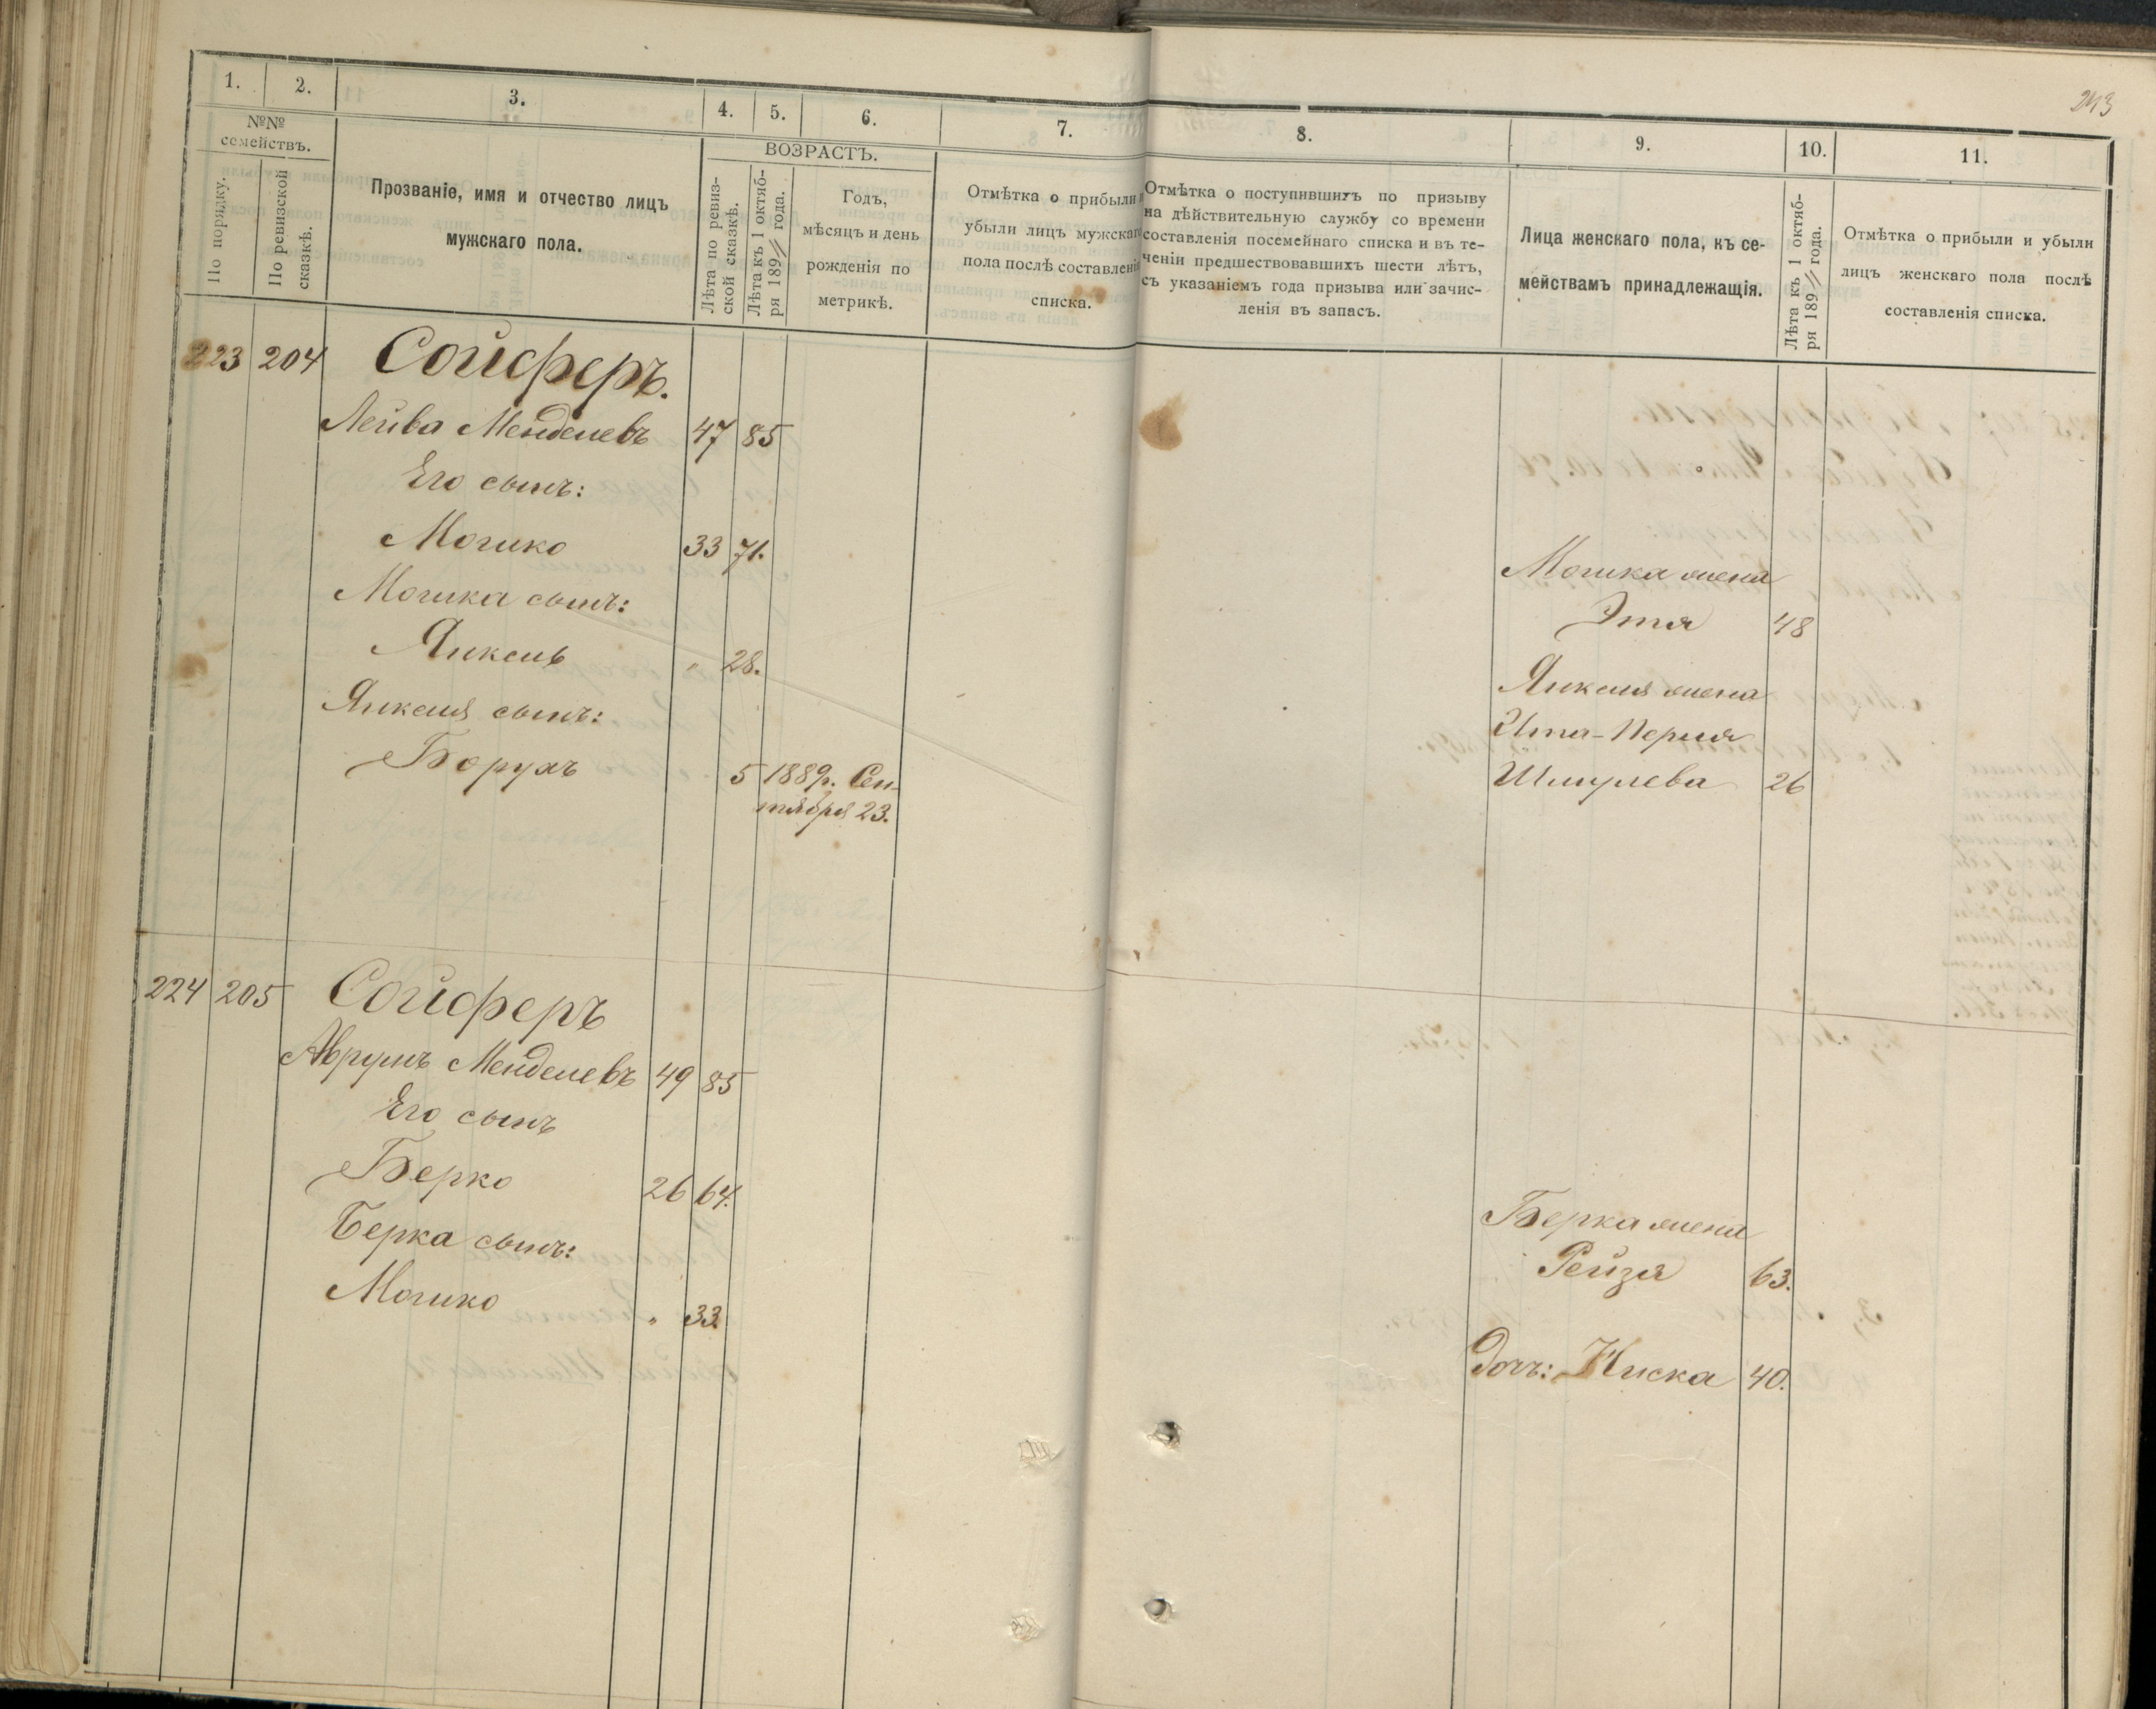 243
1. 2. 3. 4. 5. 6. 7. 8. 9. 10. 11.
№№ семействъ.
По порядку.
По ревизской сказкѣ.
Прозваніе, имя и отчество лицъ
мужскаго пола.
ВОЗРАСТЪ.
Лѣта по ревиз-
ской сказкѣ.
Лѣта къ 1 октяб-
ря 189 года.
Годъ,
мѣсяцъ и день
рожденія по
метрикѣ.
Отмѣтка о прибыли и
убыли лицъ мужскаго
пола послѣ составленія
списка.
Отмѣтка о поступившихъ по призыву
на дѣйствительную службу со времени
составленія посемейнаго списка и въ те-
ченіи предшествовавшихъ шести лѣтъ,
съ указаніемъ года призыва или зачис-
ленія въ запасъ.
Лица женскаго пола, къ се-
мействамъ принадлежащія.
Лѣта къ 1 октяб-
ря 189 года.
Отмѣтка о прибыли и убыли
лицъ женскаго пола послѣ
составленія списка.
223 204 Сойферъ.
Лейва Менделевъ 47 85
Его сынъ:
Мошко 33 71.
Мошка сынъ:
Янкель " 28.
Янкеля сынъ:
Борухъ 5 1889г. Сен-
тября 23.
Мошка жена
Этя 48
Янкеля жена
Ита-Перля
Шмулева 26
224 205 Сойферъ
Аврумъ Менделевъ 49 85
Его сынъ
Берко 26 64.
Берка сынъ:
Мошко " 33.
Берка жена
Рейзя 63.
Дочь: Киска 40.